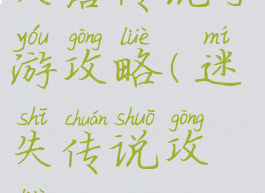 yóu gōng lüè mí
游攻略(迷
shī chuán shuō gōng
失传说攻